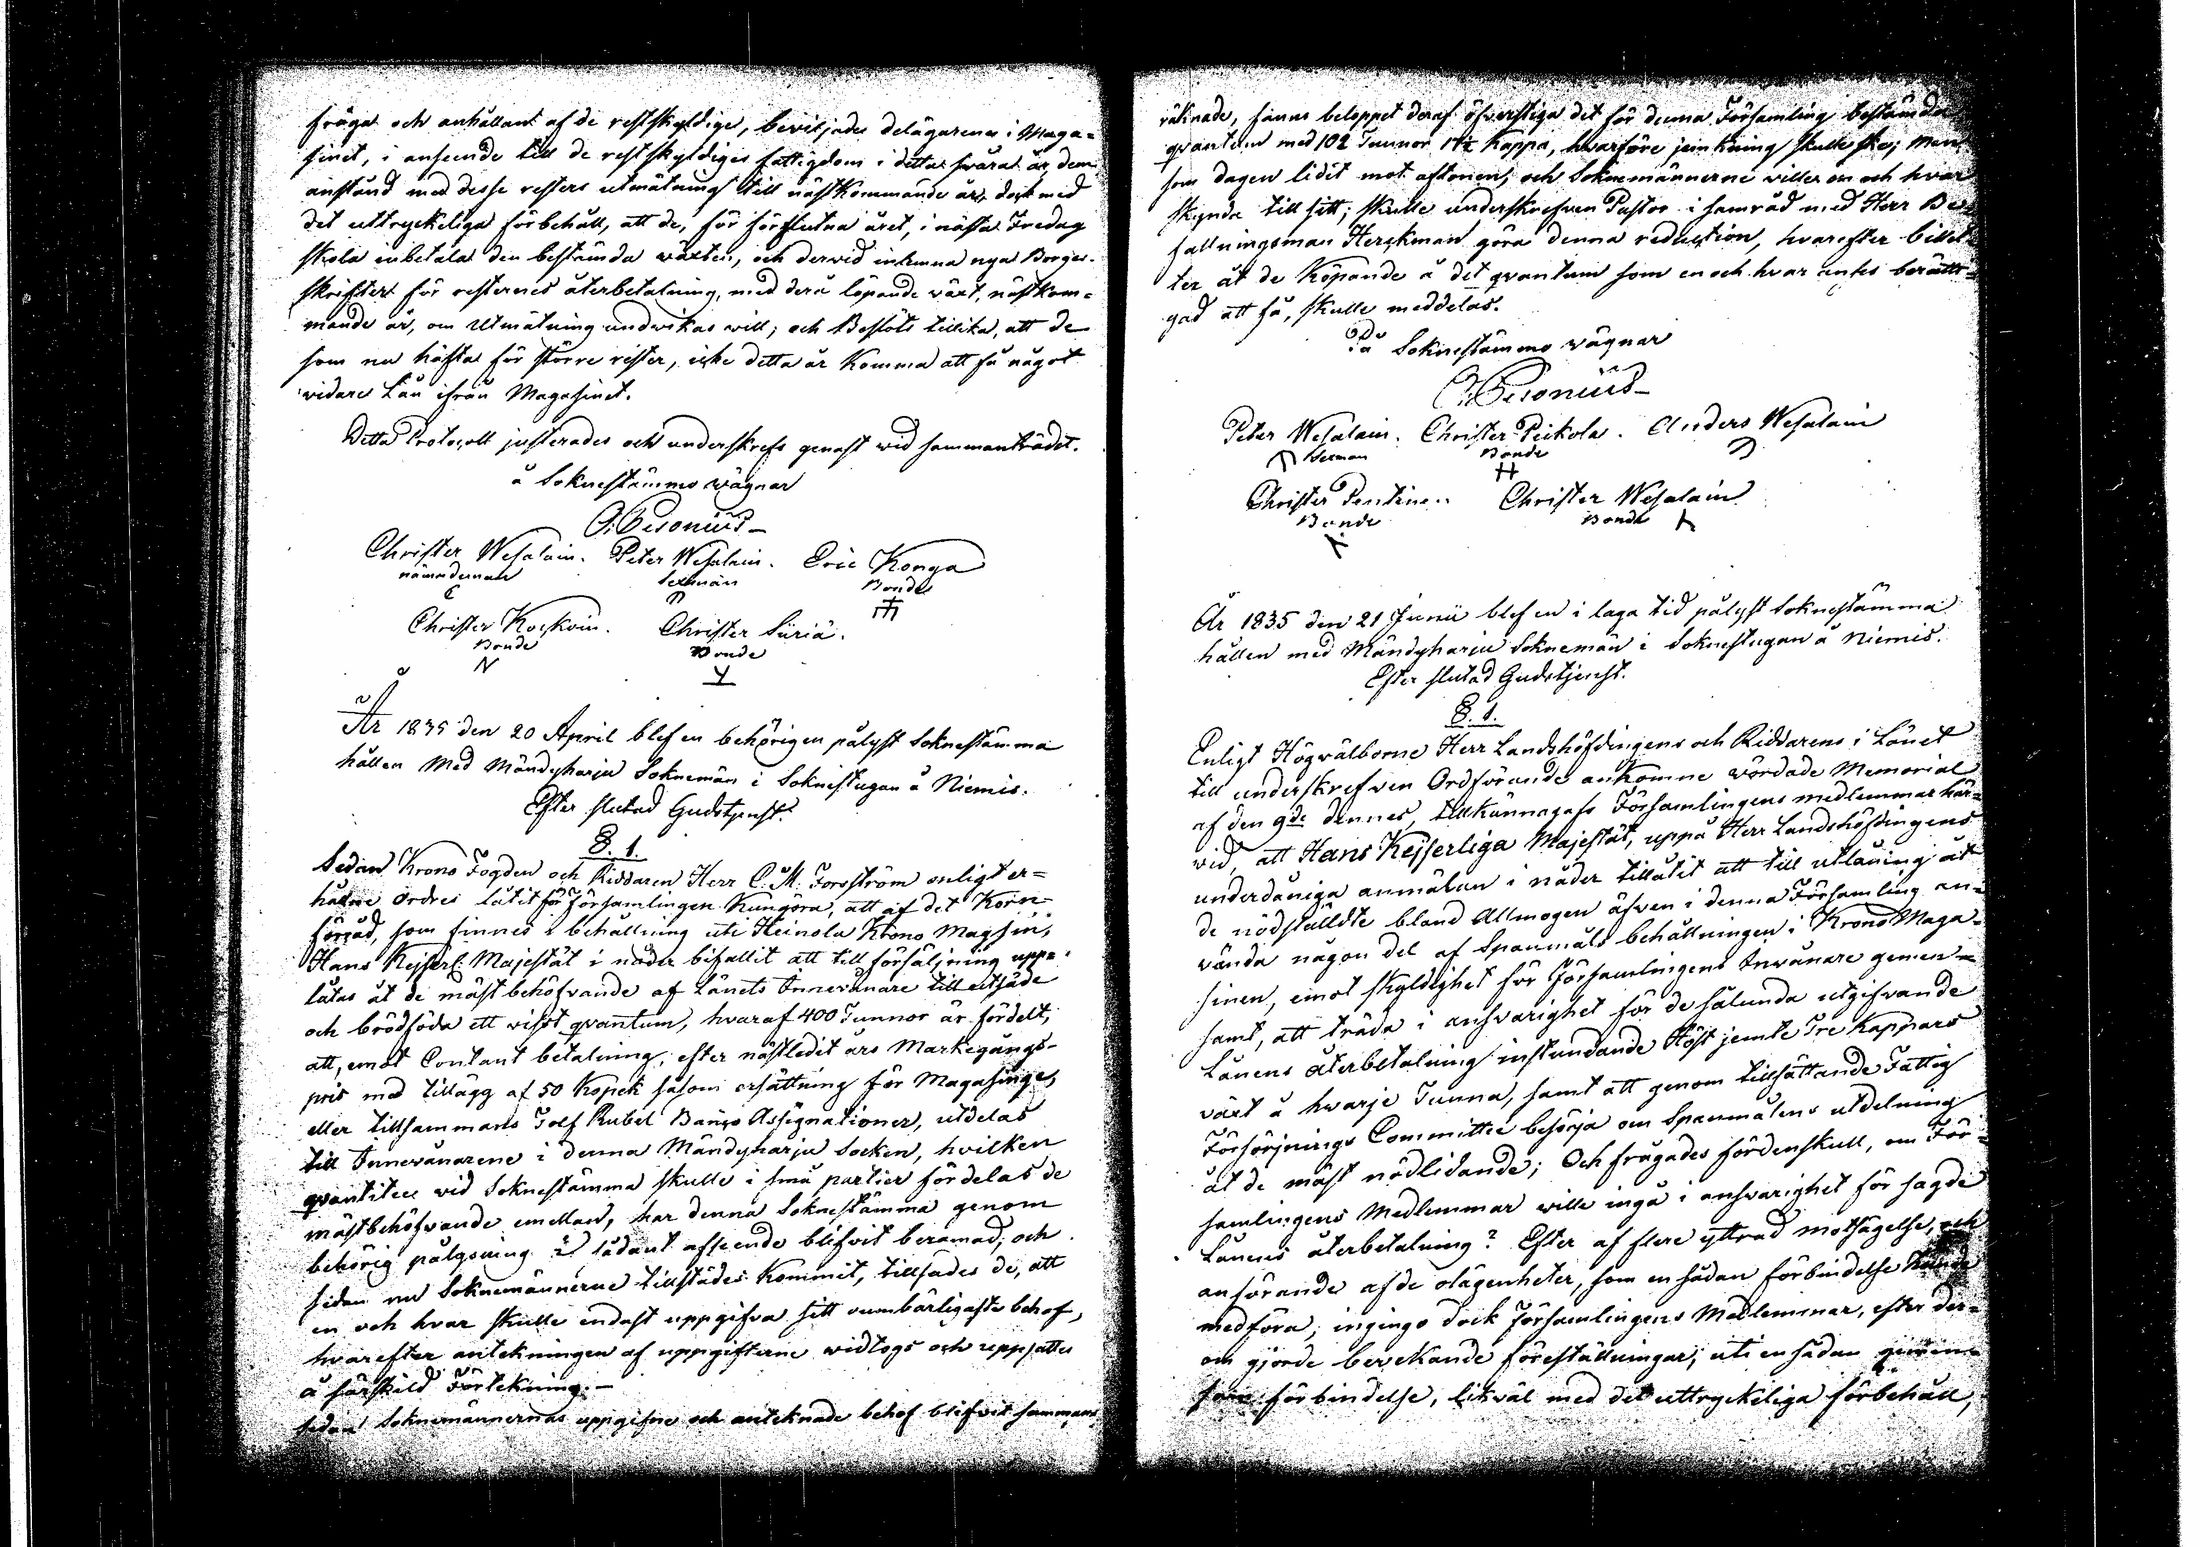 fråga och anhållant af de restskyldige, beviljades delägarena i Maga-
sinet, i anseende till de restskyldiges fattigdom i detta svåra år, dem
anstånd med desse resters utmätning till nästkommande år, dock med
det uttryckeliga förbehåll, att de, för förflutna året, i nästa Fredag
skola inbetala den bestämda wäxten, och dervid inlemna nya Borgs-
skrifter för resternes återbetalning, med derå löpande växt, nästkom-
mande år, om Utmätning undwikas will; och Beslöts tillika, att de
som nu häfta för större rester, icke detta år Komma att få något
vidare Lån ifrån Magasinet.
Detta Protocoll justerades och underskrefs genast wid sammanträdet.
å Soknestämmo wägnar
Christer Wesalain. Peter Wesalain. Eric Konga
nämndeman Sexman Bonde
Christer Koskoin. Christer Siiriä.
Bonde Bonde
År 1835 den 20 April blef en behörigen pålyst Soknestämma
hållen Med Mändyharju Soknemän i Soknestugan å Niemis.
Efter slutad Gudstjenst.
§. 1.
Sedan Krono Fogden och Riddaren Herr C. M. Forsström enligt er-
hållne ordres låtit för Församlingen Kungöra, att af det Korn-
förråd, som finnes i behållning uti Heinola Krono Magsin,
Hans Kejserl. Majestät i nåder bifallit att till försäljning upp-
låtas åt de mäst behöfvande af Länets Innevånare till utsäde
och brödföda ett wisst qvantum, hvaraf 400 Tunnor är fördelt,
att, emot Contant betalning, efter nästledit års Markegångs-
pris med tillägg af 50 Kopek såsom ersättning för Magasinet,
eller tillsammans Tolf Rubel Banco Assignationer, utdelas
till Innevånarene i denna Mändyharju Socken, hvilken
qvantitee vid Soknestämma skulle i små partier fördelas de
mästbehöfvande emellan, har denna Soknestämma genom
behörig pålysning i sådant afseende blifvit beramad, och
sedan nu Soknemännerne tillstädes Kommit, tillsades de, att
en och hvar skulle endast uppgifva sitt oumbärligaste behof,
hvarefter antekningen af uppgifterne widtogs och uppsattes
å särskild Förtekning.—
Sedan Soknemännernas uppgifne och anteknade behof blifvit samman-
räknade, fanns beloppet deraf öfverstiga det för denna Församling bestämda
qvantum med 102 Tunnor 1½ Kappa, hwarföre jemkning skulle ske; Men
som dagen lidit mot aftonen, och Soknemännerne wille en och hvar
skynda till sitt, skulle underskrefven Pastor i samråd med Herr Be-
fallningsman Herckman göra denna reduction, hvarefter billet-
ter åt de Köpande å det qvantum som en och hvar antes berätti-
gad att få, skulle meddelas.
På Soknestämmo wägnar
Peter Wesalain. Christer Peikola. Anders Wesalain
Sexman Bonde
Christer Pentinen Christer Wesalain
Bonde Bonde
År 1835 den 21 Junii blef en i laga tid pålyst Soknestämma
hållen med Mändyharju Soknemän i Soknestugan å Niemis.
Efter slutad Gudstjenst.
§. 1.
Enligt Högvälborne Herr Landshöfdingens och Riddarens i Länet
till underskrefven Ordförande ankomne wördade Memorial
af den 9de dennes, tillkännagafs Församlingens medlemmar här-
wid, att Hans Kejserliga Majestät, uppå Herr Landshöfdingens
underdåniga anmälan i nåder tillåtit att till utlåning åt
de nödställdte bland Allmogen äfven i denna Församling an-
wända någon del af Spanmåls behållningen i Krono Maga-
sinen, emot skyldighet för Församlingens Inwånare gemen-
samt, att träda i answarighet för de sålunda utgifvande
Lånens återbetalning instundande Höst jemte Tre Kappars
växt å hwarje Tunna, samt att genom tillsättande Fattig
Försörjnings Committée besörja om Spanmålens utdelning
åt de mäst nödlidande; Och frågades fördenskull, om För-
samlingens Medlemmar wille ingå i answarighet för sagde
Lånens återbetalning? Efter af flere yttrad motsägelse, och
anförande af de olägenheter, som en sådan förbindelse Kunde
medföra, ingingo dock Församlingens Medlemmar, efter der-
om gjorde bevekande föreställningar, uti en sådan gemen-
sam förbindelse, likväl med det uttryckeliga förbehåll,